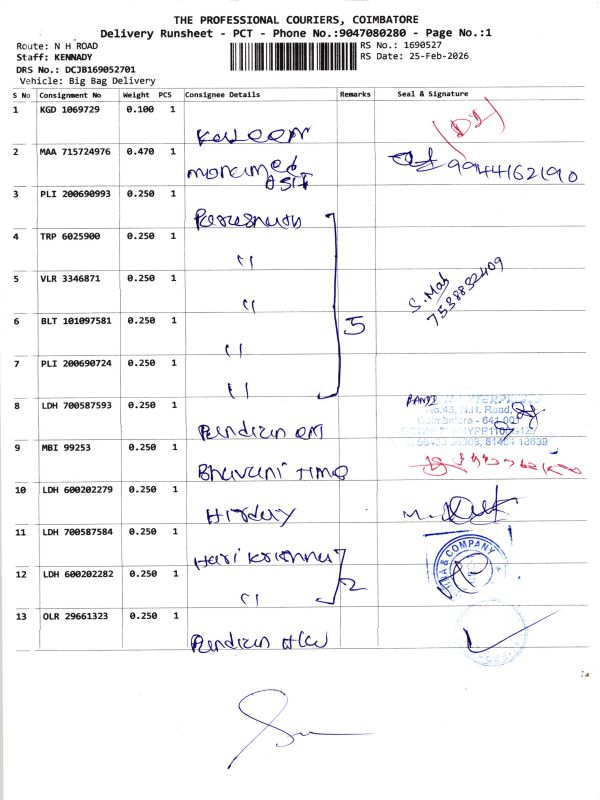 THE PROFESSIONAL COURIERS, COIMBATORE
Delivery Runsheet - PCT - Phone No.:9047080280 - Page No.:1
Route: N H ROAD RS No.: 1690527
Staff: KENNADY RS Date: 25-Feb-2026
DRS No.: DCJB169052701
Vehicle: Big Bag Delivery
S No Consignment No Weight PCS Consignee Details Remarks Seal & Signature
1 KGD 1069729 0.100 1
Kaleem
2 MAA 715724976 0.470 1
9944162190
3 PLI 200690993 0.250 1
4 TRP 6025900 0.250 1
"
5 VLR 3346871 0.250 1
S. Mab
7538832409
"
6 BLT 101097581 0.250 1
5
"
7 PLI 200690724 0.250 1
"
8 LDH 700587593 0.250 1
No.43, N.H. Road,
Coimbatore - 641 001
Pandian
9 MBI 99253 0.250 1
Bhavani
10 LDH 600202279 0.250 1
Hirday
11 LDH 700587584 0.250 1
Hari Krishna
& COMPANY
12 LDH 600202282 0.250 1
" 2
13 OLR 29661323 0.250 1
Pandian